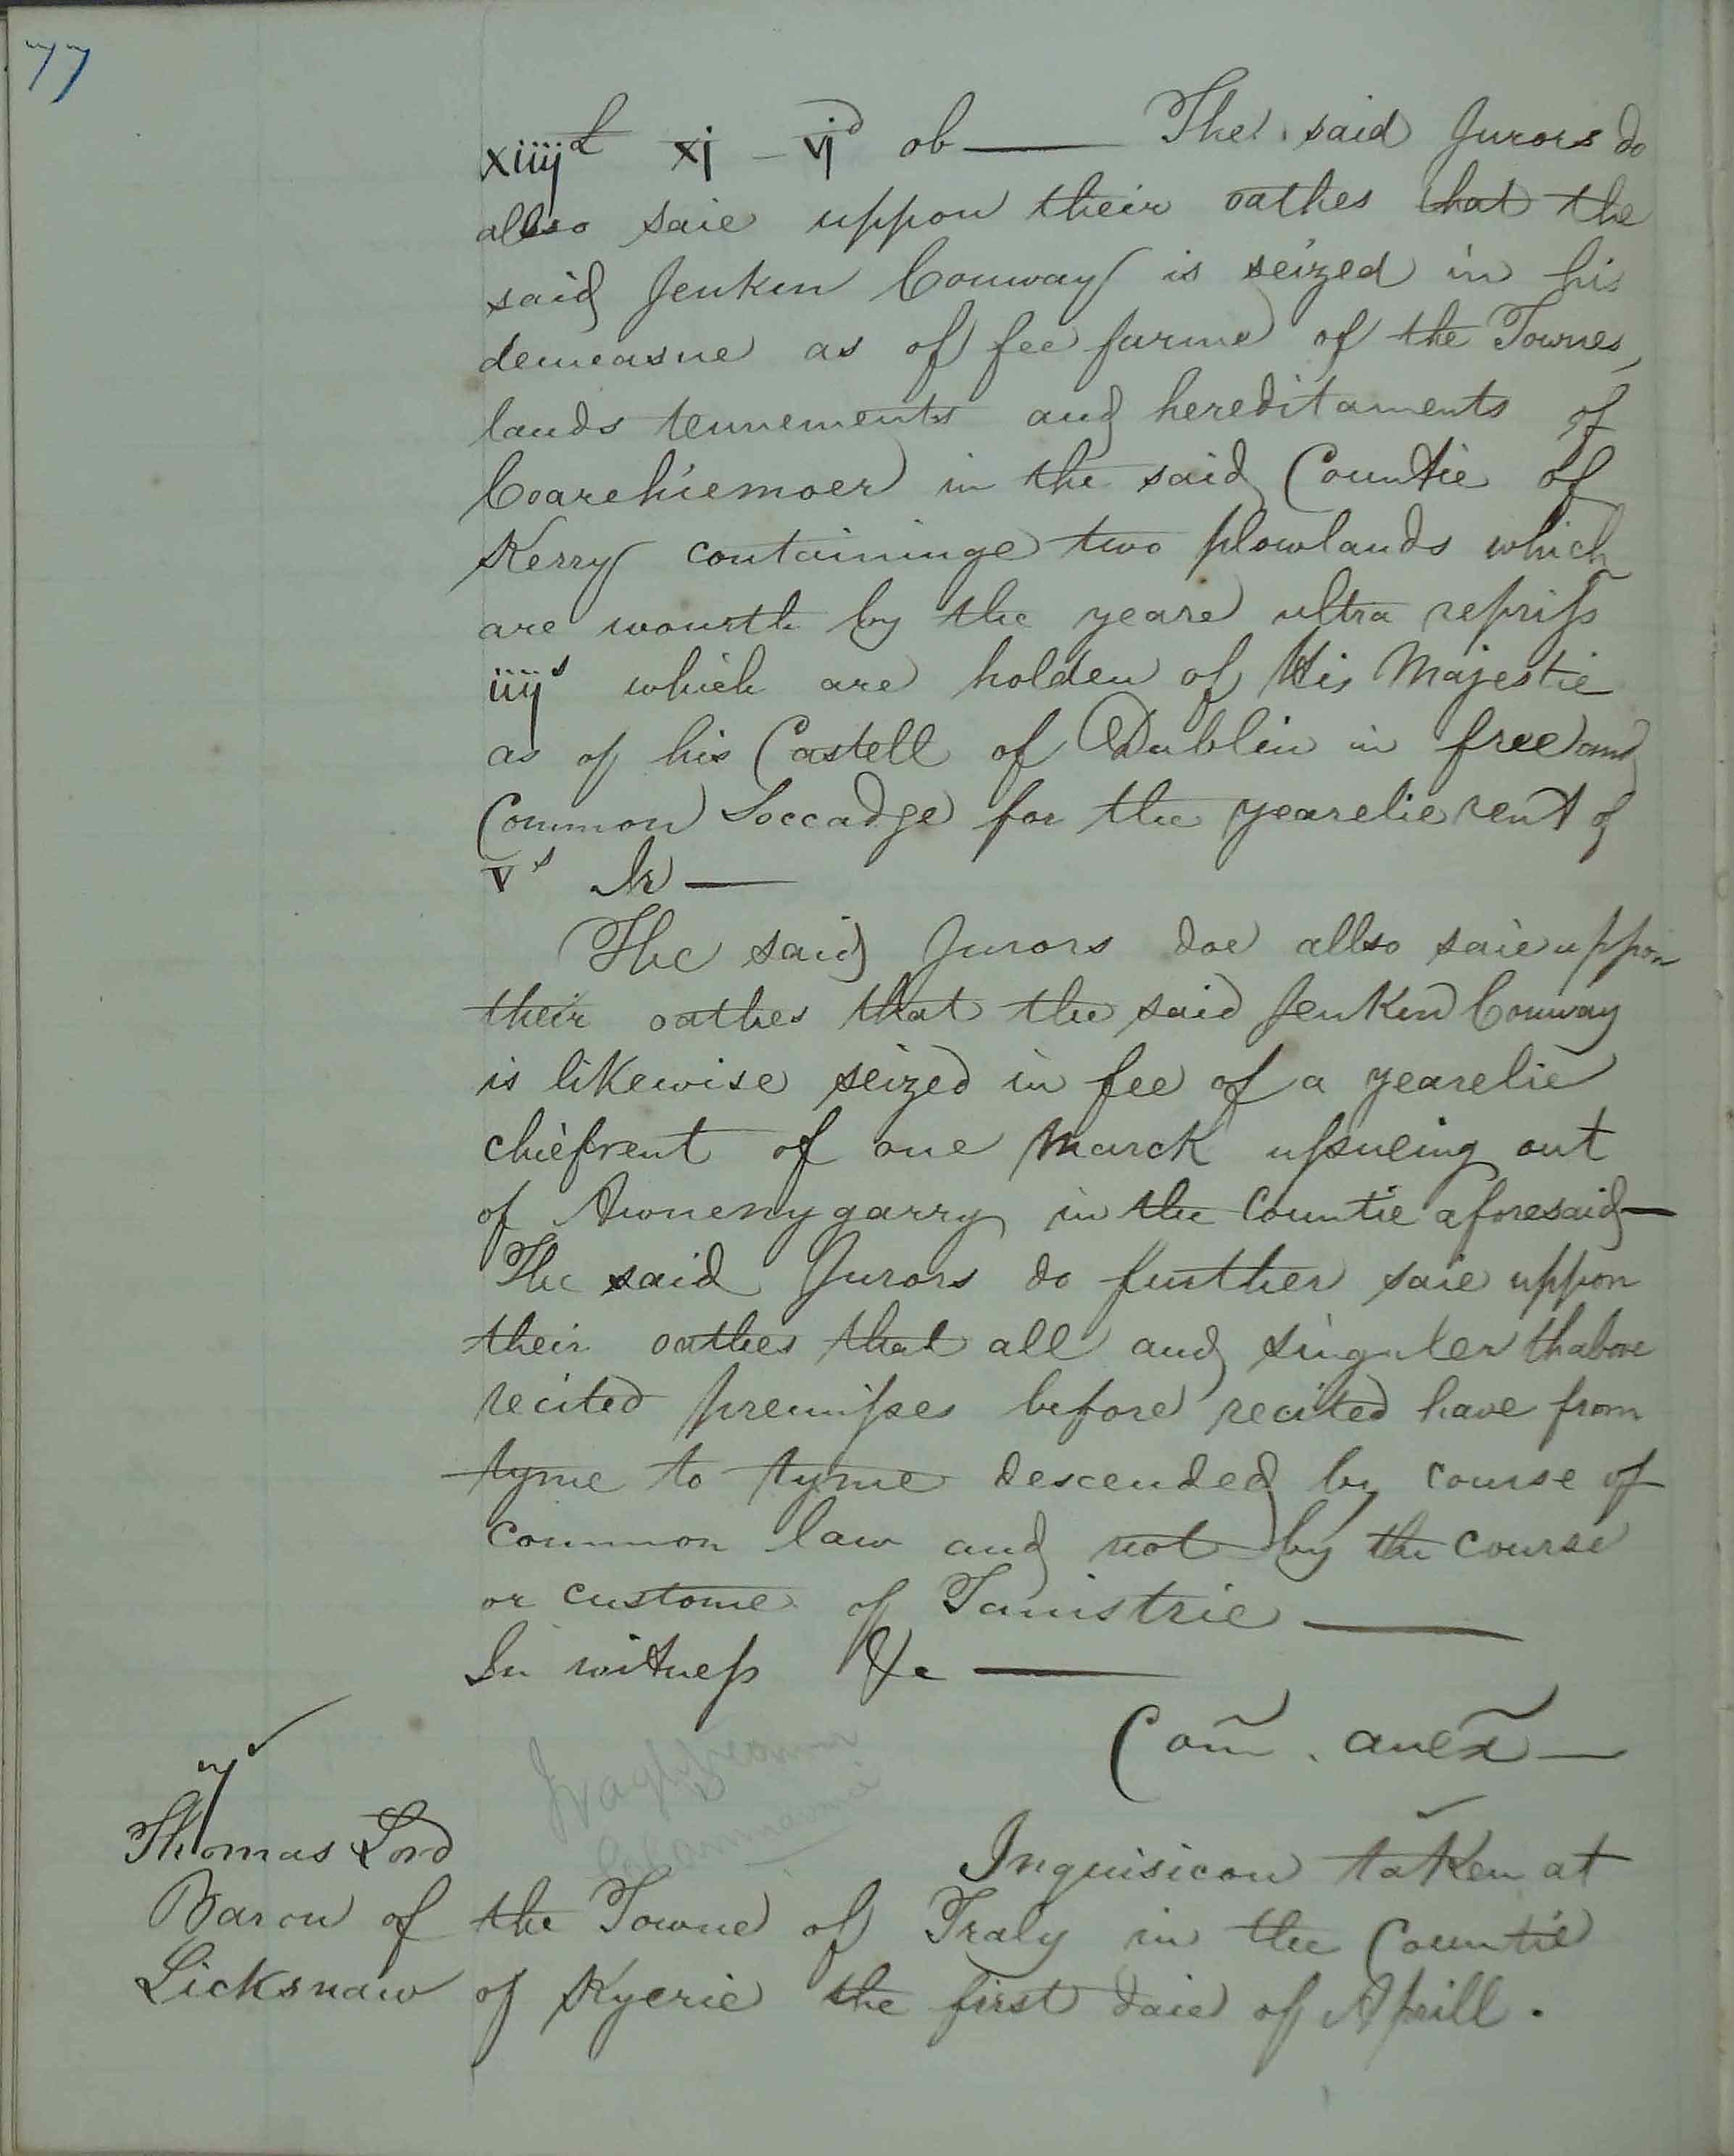 77
xiiij£ xj – vjd ob — The said Jurors do
allso saie uppon their oathes that the
said Jenken Conway is seized in his
demeasne as of fee farme of the Townes,
lands tennements and hereditaments of
Coarehiemoer in the said Countie of
Kerry containinge two plowlands which
are wourth by the yeare ultra repriſs
iiijs which are holden of His Majestie
as of his Castell of Dublin in free and
Common Soccadge for the yearelie rent of
vs Ir —
The said Jurors doe allso saie uppon
their oathes that the said Jenken Conway
is likewise seized in fee of a yearelie
chiefrent of one Marck uſsueing out
of Awnenygarry in the Countie aforesaid —
The said Jurors do further saie uppon
their oathes that all and singuler thabove
recited premiſses before recited have from
tyme to tyme descended by course of
common law and not by the course
or custome of Tanistrie —
In witneſs &c —
Com̃. anex̃ —
iij
Thomas Lord
Baron of
Licksnaw
Inquisicon taken at
the Towne of Traly in the Countie
of Kyerie the first daie of Aprill.